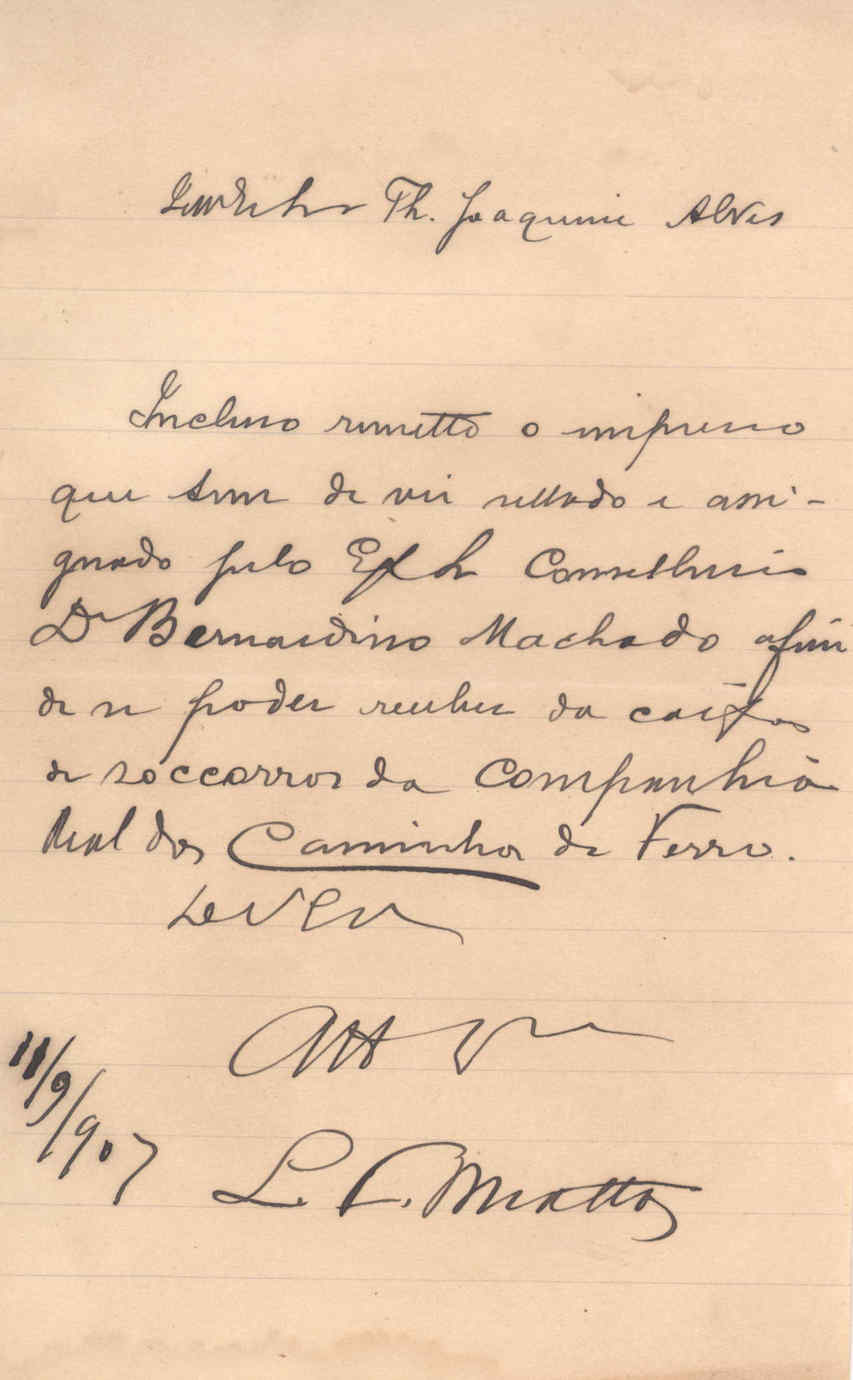 Th. Joaquim Alves
Incluso remetto o impresso
que tem de vir sellado e assi-
gnado pelo Exmo Conselheiro
Dr Bernardino Machado afim
de se poder receber da caixa
de soccorros da Companhia
Real dos Caminhos de Ferro.
De V Exa
Atto
11/9/907
L. C. Mattos